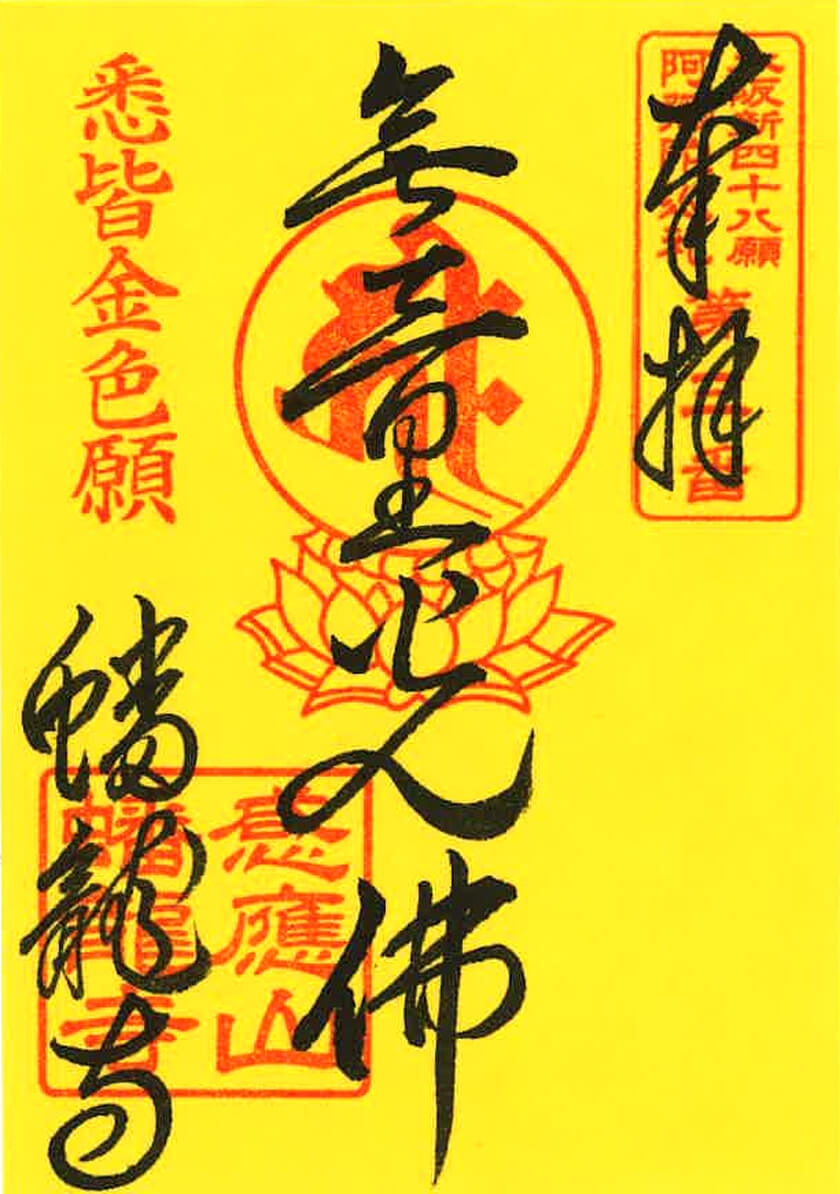 奉拝
大阪新四十八願
阿弥陀巡礼
第三番
無量光佛
悉皆金色願
蟠龍寺
應山
蟠龍寺